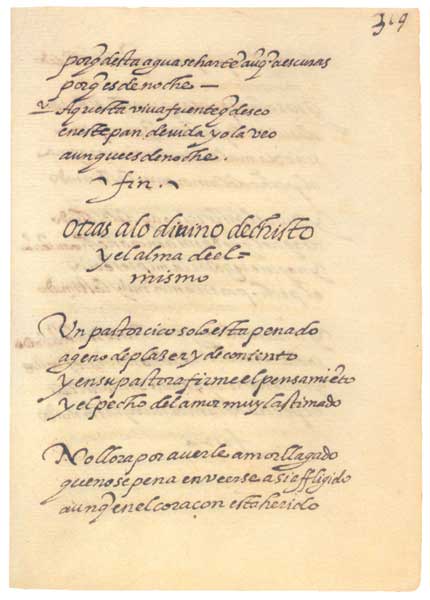 319
porq̃ desta agua se harte aũq̃ a escuras
porq̃ es de noche —
Aquesta viva fuente q̃ deseo
en este pan de vida yo la veo
aunque es de noche.
fin.
Otras a lo divino de christo
y el alma de el-
mismo
Un pastorcico solo esta penado
ageno de plazer y de contento
y en su pastora firme el pensamiẽto
y el pecho del amor muy lastimado
No llora por averle amor llagado
que no se pena en verse asi affligido
aunq̃ en el coraçon esta herido